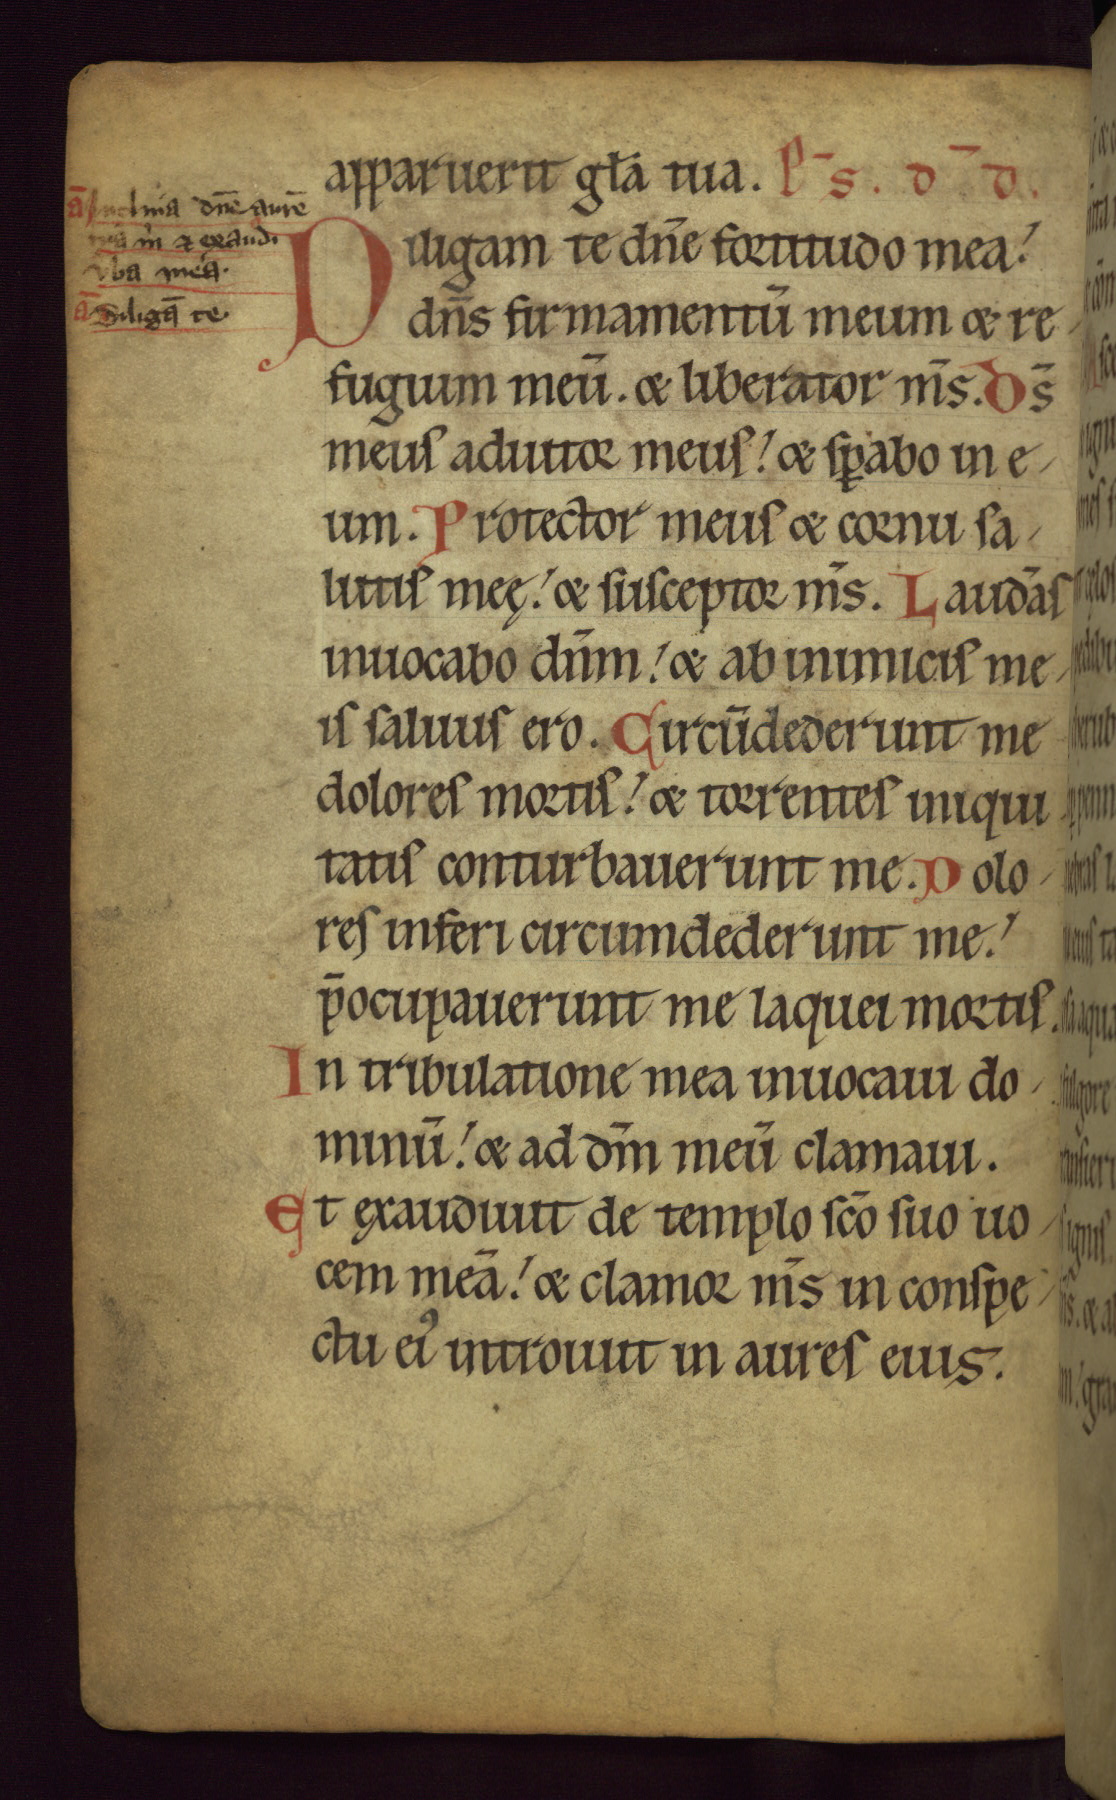 apparuerit gła tua. P̄s. d̄ d.
Diligam te dn̄e fortitudo mea!
dn̄s firmamentū meum & re-
fugium meū. & liberator m̄s. Ds̄
meus adiutor meus! & sꝑabo in e-
um. Protector meus & cornu sa-
lutis meę! & susceptor m̄s. Laudās
inuocabo dn̄m! & ab inimicis me-
is saluus ero. Circūdederunt me
dolores mortis! & torrentes iniqui
tatis conturbauerunt me. Dolo-
res inferi circumdederunt me!
p̄ocupauerunt me laquei mortis.
In tribulatione mea inuocaui do-
minū! & ad dm̄ meū clamaui.
Et exaudiuit de templo sc̄o suo uo-
cem meā! & clamor m̄s in conspe-
ctu eiꝰ introiuit in aures eius.
ā Inclina dn̄e aurē
tuā m̄ & exaudi
v̄ba mea.
ā Diligā te.